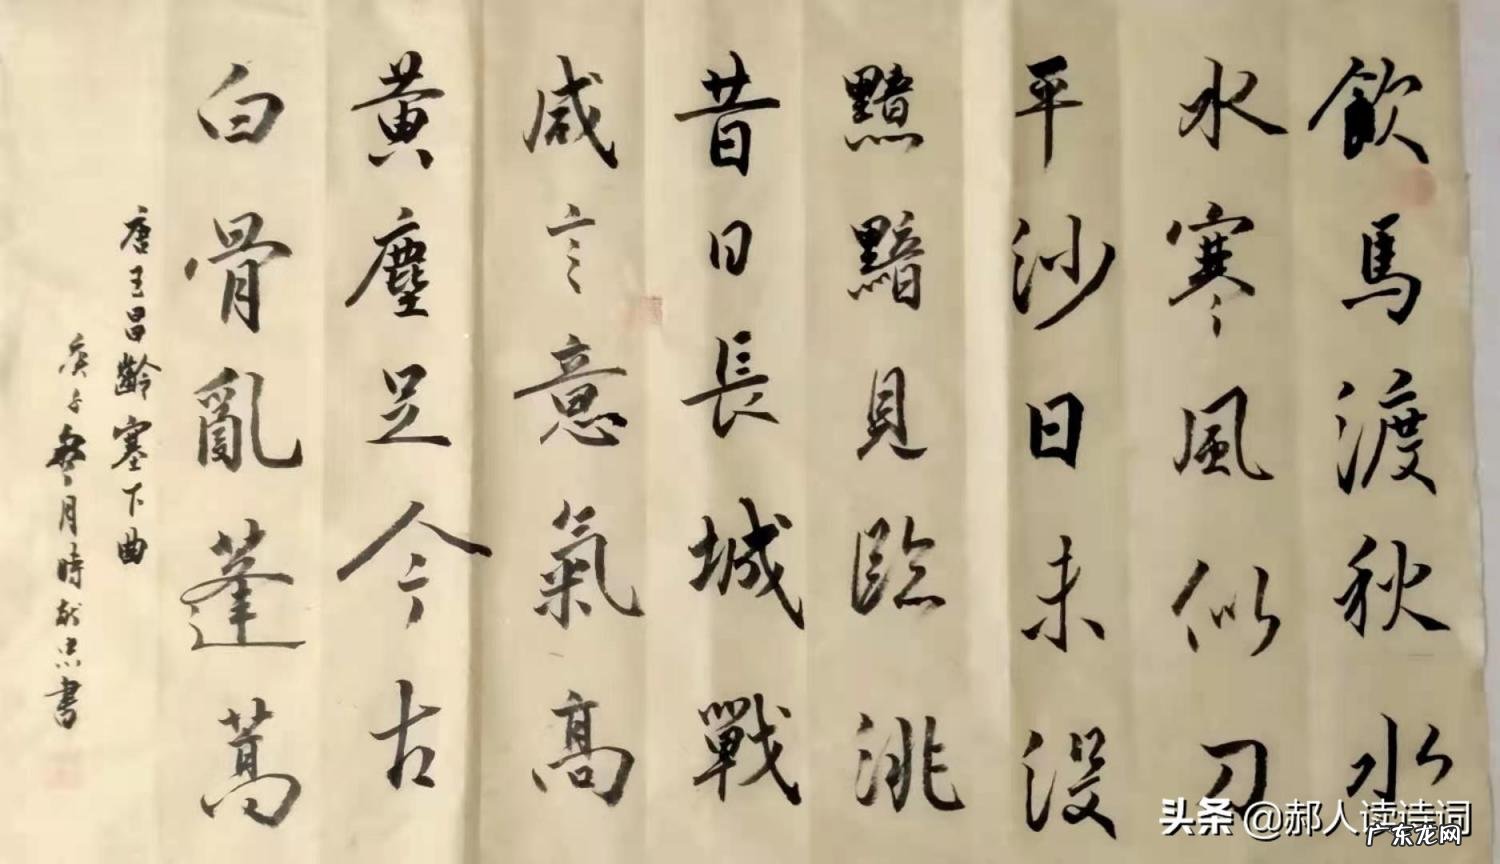 飲馬渡秋水
水寒風似刀
平沙日未沒
黯黯見臨洮
昔日長城戰
咸言意氣高
黃塵足今古
白骨亂蓬蒿
唐王昌齡塞下曲
庚子月時書
头条 @郝人读诗词
广东龙网